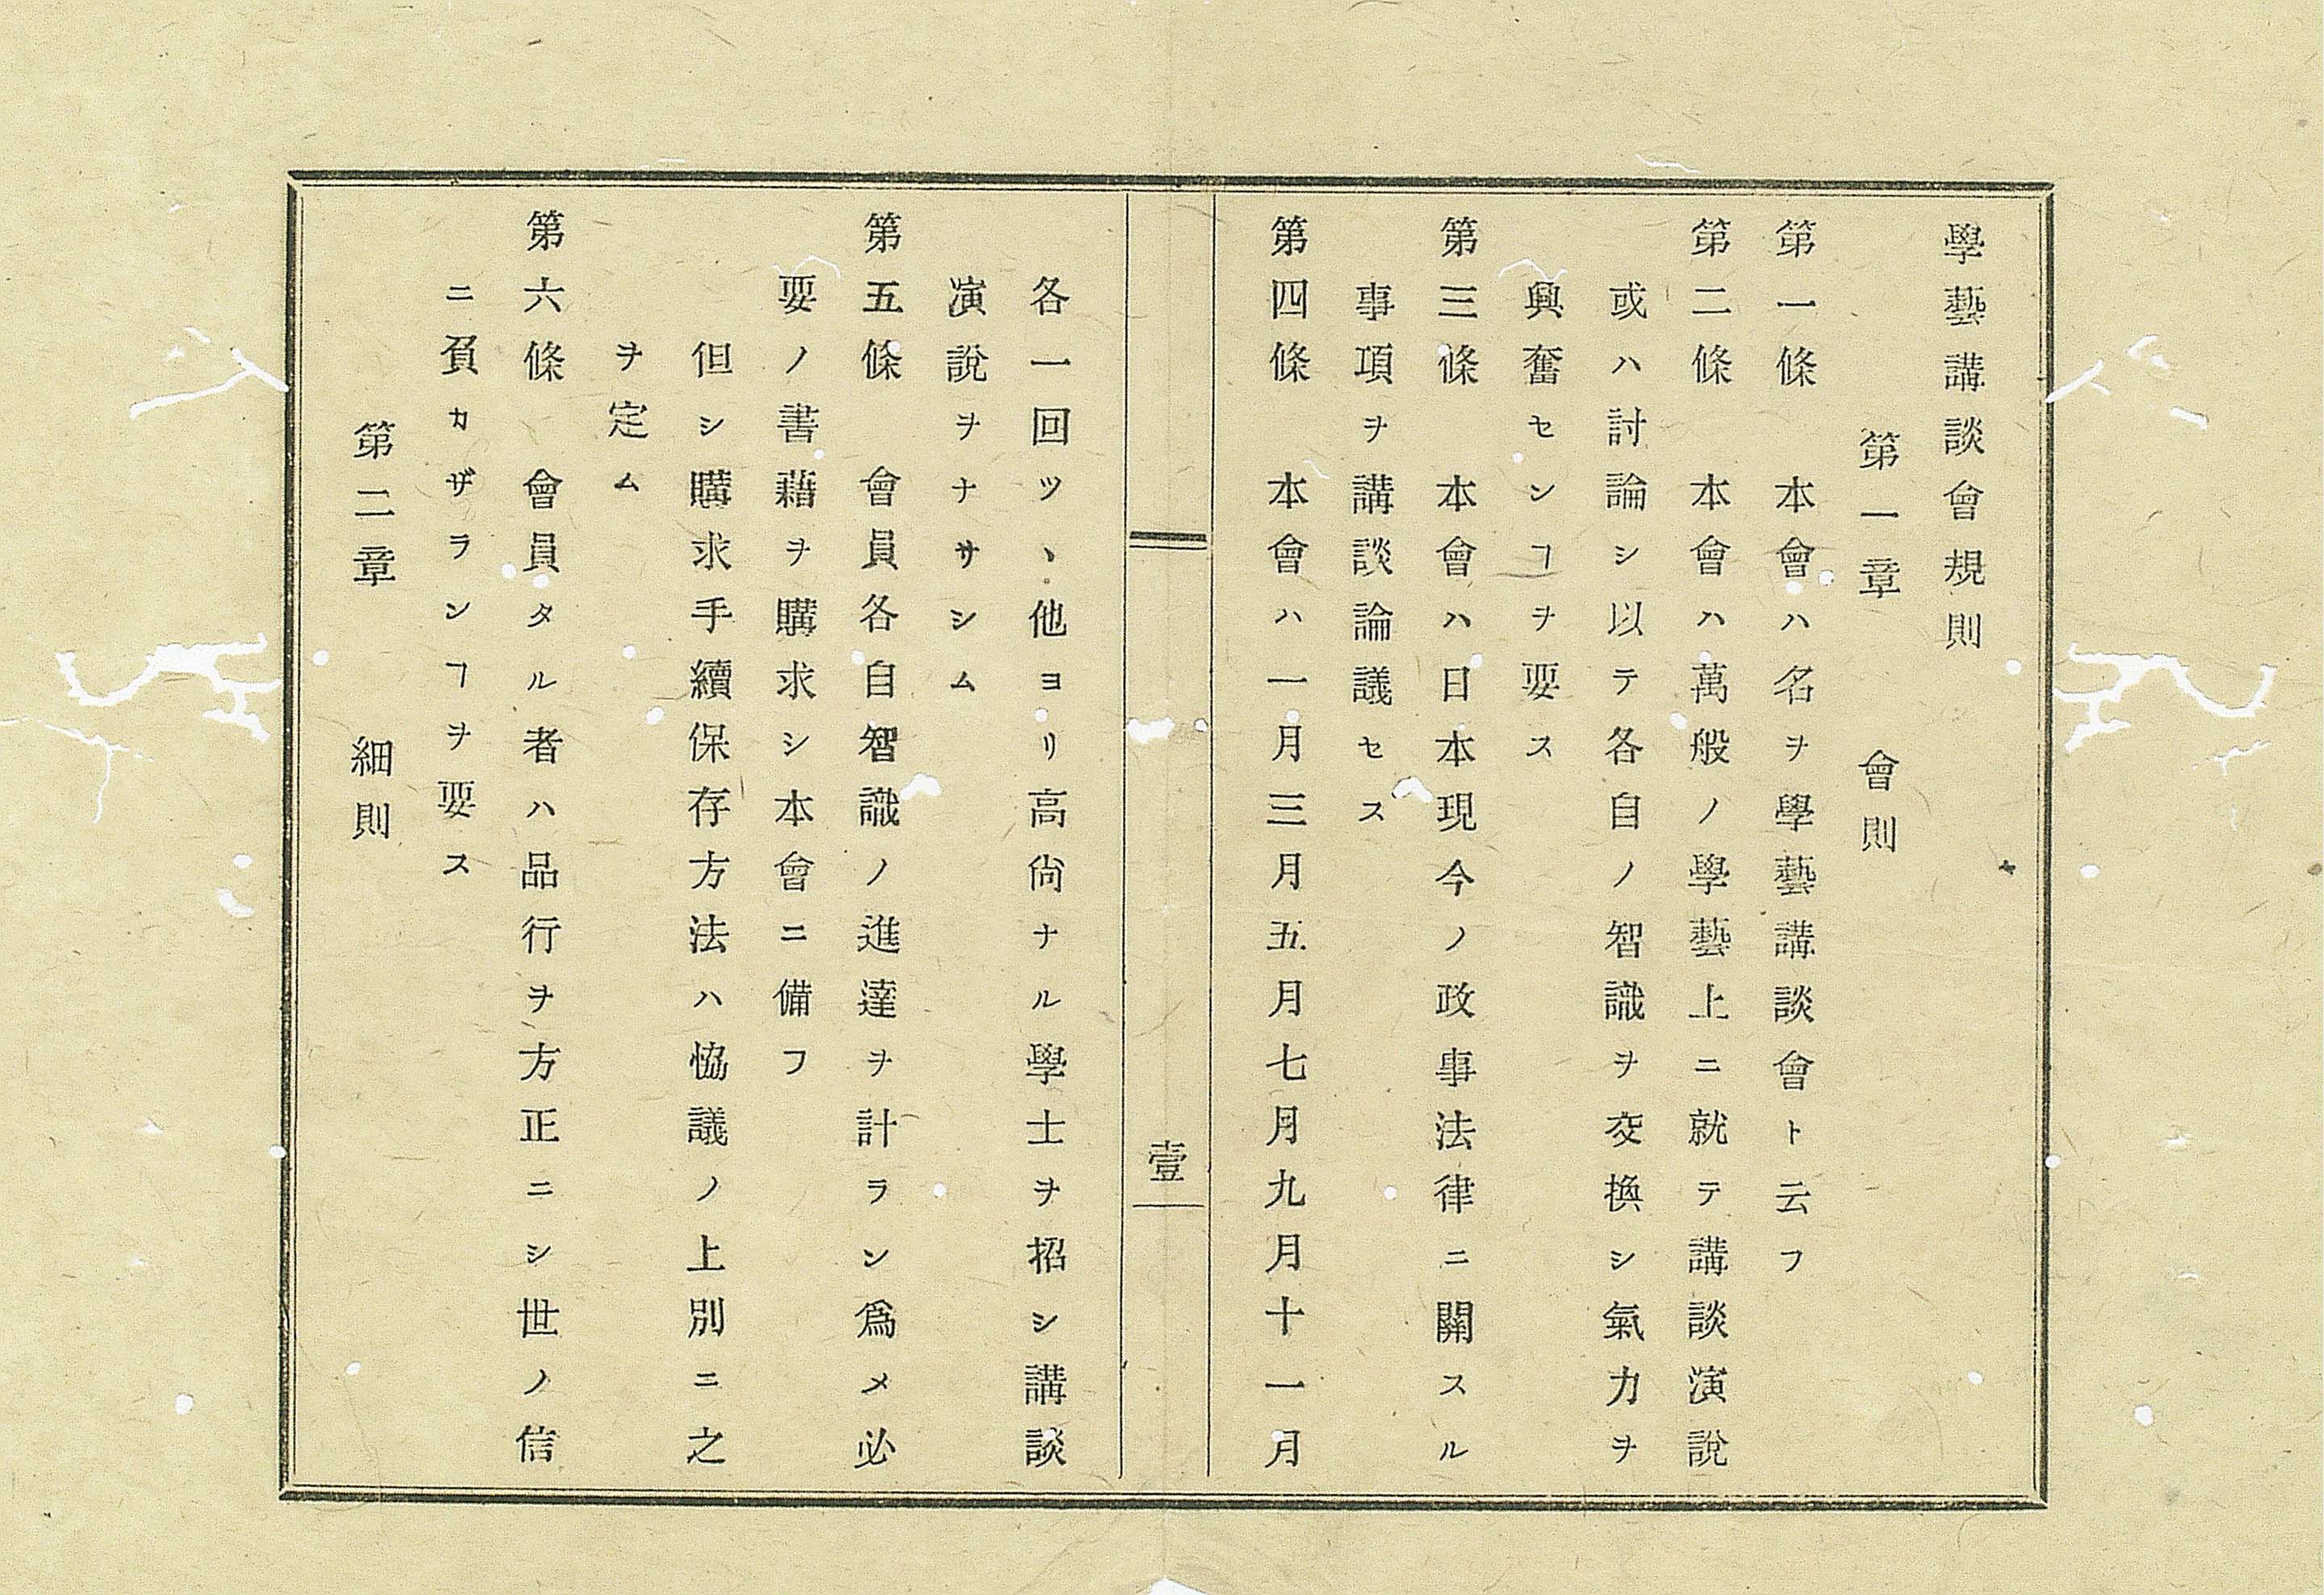 學藝講談會規則
第一章　會則
第一條　本會ハ名ヲ學藝講談會ト云フ
第二條　本會ハ萬般ノ學藝上ニ就テ講談演說
或ハ討論シ以テ各自ノ智識ヲ交換シ氣力ヲ
興奮センヿヲ要ス
第三條　本會ハ日本現今ノ政事法律ニ關スル
事項ヲ講談論議セス
第四條　本會ハ一月三月五月七月九月十一月
壹
各一回ツヽ他ヨリ高尙ナル學士ヲ招シ講談
演說ヲナサシム
第五條　會員各自智識ノ進達ヲ計ラン爲メ必
要ノ書藉ヲ購求シ本會ニ備フ
但シ購求手續保存方法ハ恊議ノ上別ニ之
ヲ定ム
第六條　會員タル者ハ品行ヲ方正ニシ世ノ信
ニ負カザランヿヲ要ス
第二章　細則